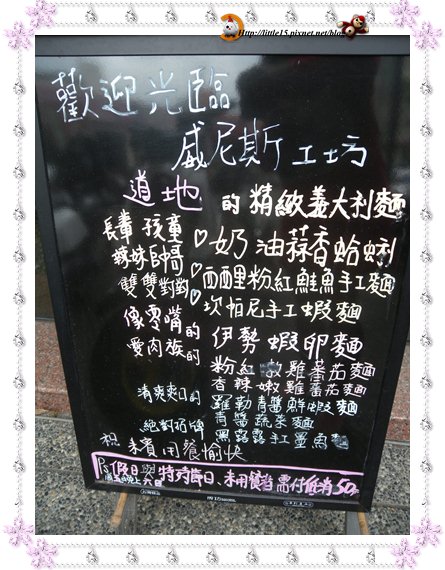 Http://little15.pixnet.net/blog
歡迎光臨
威尼斯工坊
道地的精緻義大利麵
長輩孩童♡奶油蒜香蛤蜊
辣妹帥哥♡西西里粉紅鮭魚手工麵
雙雙對對♡坎帕尼手工蝦麵
像零嘴的伊勢蝦卵麵
愛肉族的粉紅嫩雞蕃茄麵
香辣嫩雞蕃茄麵
清爽爽口的羅勒青醬鮮蝦麵
青醬蔬菜麵
絕對招牌黑露露手工墨魚麵
祝 來賓用餐愉快
Ps 假日
特殊節日、未用餐者需付低消50